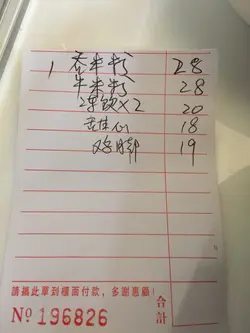 1 28
牛米粉 28
凍飲×2 20
18
鸡脚 19
請携此單到櫃面付款,多謝惠顧!
合計
Nº 196826